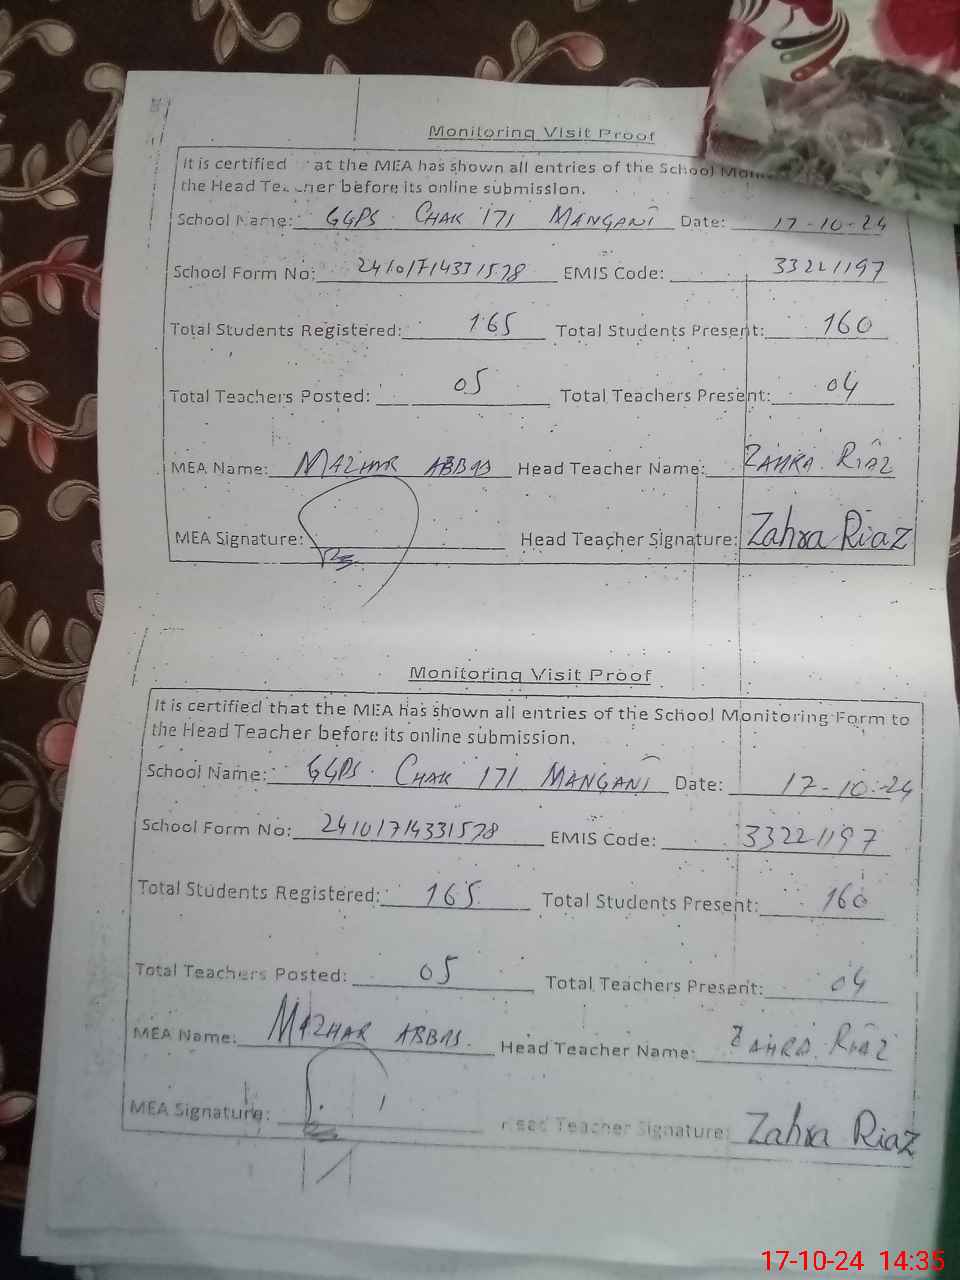 Monitoring Visit Proof
It is certified at the MEA has shown all entries of the School
the Head Teacher before its online submission.
School Name: GGPS. CHAK 171 MANGANI Date: 17-10-24
School Form No: 24101714331578 EMIS Code: 33221197
Total Students Registered: 165 Total Students Present: 160
Total Teachers Posted: 05 Total Teachers Present: 04
MEA Name: MAZHAR ABBAS Head Teacher Name: ZAHRA. RIAZ
MEA Signature: Head Teacher Signature: Zahra Riaz
Monitoring Visit Proof
It is certified that the MEA has shown all entries of the School Monitoring Form to
the Head Teacher before its online submission.
School Name: GGPS. CHAK 171 MANGANI Date: 17-10-24
School Form No: 24101714331578 EMIS Code: 33221197
Total Students Registered: 165 Total Students Present: 160
Total Teachers Posted: 05 Total Teachers Present: 04
MEA Name: MAZHAR ABBAS. Head Teacher Name: ZAHRA. RIAZ
MEA Signature: Head Teacher Signature: Zahra Riaz
17-10-24 14:35